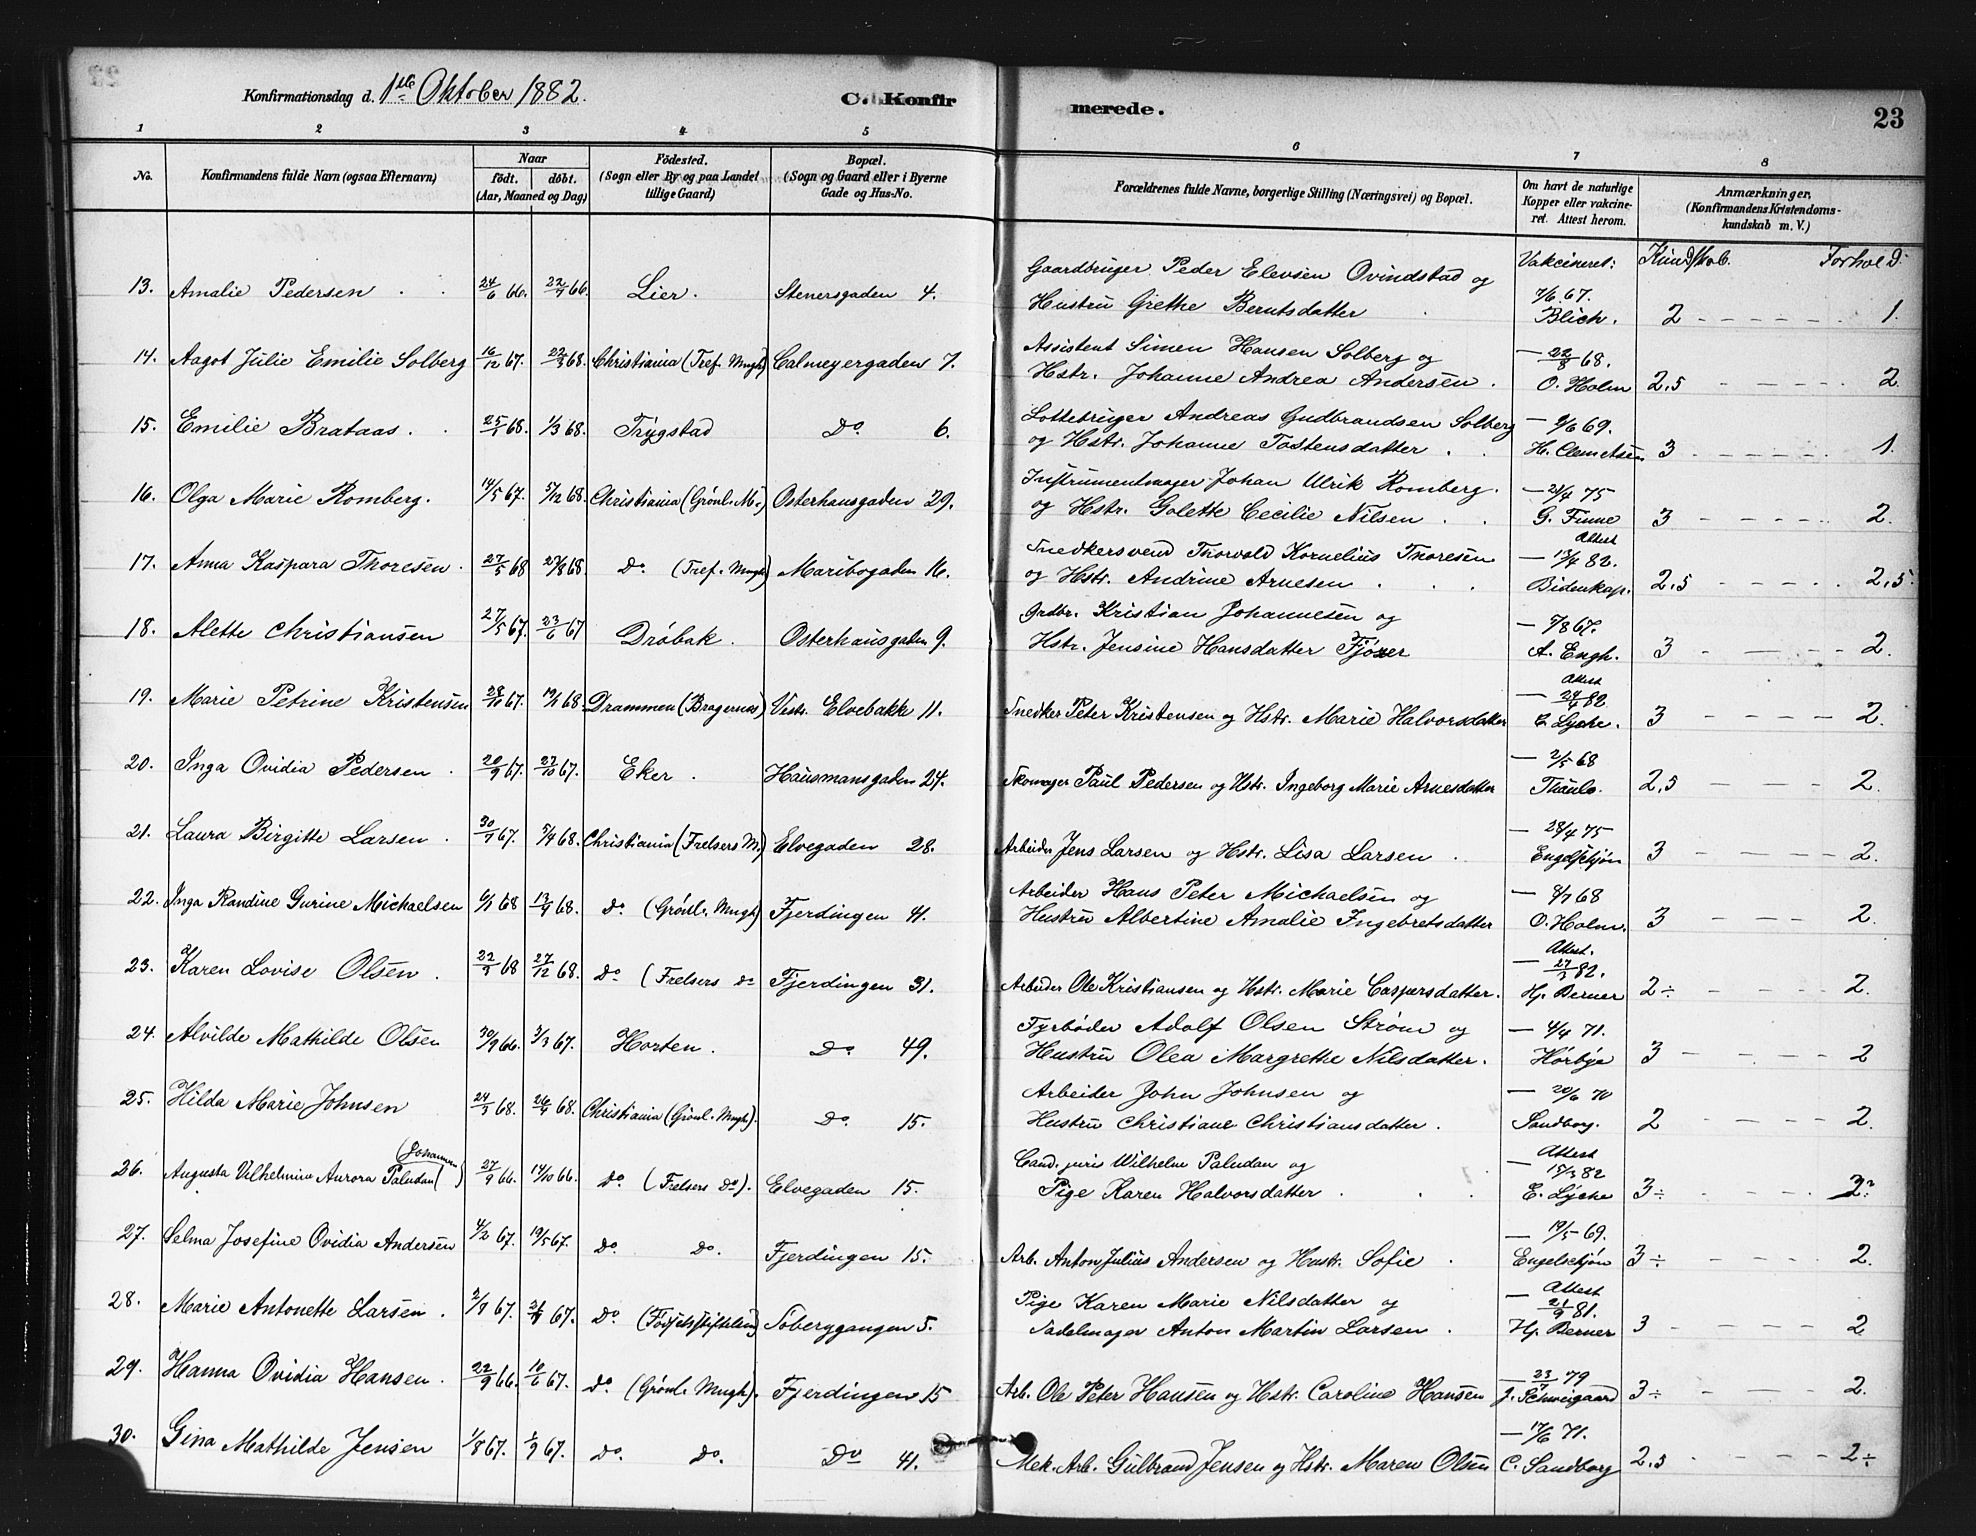 Konfirmationsdag d. 1ste Oktober 1882. C. Konfirmerede. 23
1 2 3 4 5 6 7 8
No. Konfirmandens fulde Navn (ogsaa Efternavn) Naar födt. döbt. (Aar, Maaned og Dag) Födested. (Sogn eller By og paa Landet tillige Gaard) Bopæl. (Sogn og Gaard eller i Byerne Gade og Hus-No. Forældrenes fulde Navne, borgerlige Stilling (Næringsvei) og Bopæl. Om havt de naturlige Kopper eller vakcineret. Attest herom. Anmærkninger, (Konfirmandens Kristendomskundskab m. V.)
Vakcineret: Kundskab. Forhold.
13. Amalie Pedersen 24/6 66. 22/7 66. Lier. Stenersgaden 4. Gaardbruger Peder Elevsen Ovindstad og Hustru Grethe Berntsdatter 7/6 67. Blich. 2 1.
14. Aagot Julie Emilie Solberg 16/12 67. 22/3 68. Christiania (Tref. Mngh) Calmeyergaden 7. Assistent Simen Hansen Solberg og Hstr. Johanne Andrea Andersen. — 22/8 68. O. Holm 2,5 2.
15. Emilie Brataas. 25/1 68. 1/3 68. Trygstad Do 6. Lottebruger Andreas Gudbrandsen Solberg og Hstr. Johanne Tostensdatter — 9/6 69. H. Clemetsen 3 1.
16. Olga Marie Romberg. 14/5 67. 5/12 68. Christiania (Grönl. M.) Osterhausgaden 29. Instrumentmager Johan Ulrik Romberg. og Hstr. Golette Cecilie Nilsen — 21/4 75 G. Finne 3 2.
17. Anna Kaspara Thoresen. 27/5 68 23/8 68. Do (Tref. Mngh) Maribogaden 16. Snedkersvend Thorvald Kornelius Thoresen og Hstr. Andrine Arnesen Attest — 17/4 82. Bidenkap. 2,5 2,5.
18. Alette Christiansen 27/5 67. 23/6 67 Dröbak. Osterhausgaden 9. Grdbr. Kristian Johannesen og Hstr. Jensine Hansdatter Fjöser — 7/8 67. A. Engh. 3 2.
19. Marie Petrine Kristensen 28/10 67. 19/1 68. Drammen (Bragernæs) Vestr. Elvebakke 11. Snedker Peter Kristensen og Hstr. Marie Halvorsdatter Attest — 24/4 82 E. Lyche. 3 2.
20. Inga Ovidia Pedersen 20/9 67. 27/10 67. Eker. Hausmansgaden 24. Skomager Paul Pedersen og Hstr. Ingeborg Marie Arnesdatter — 2/5 68 Thaulo. 2,5 2.
21. Laura Birgitte Larsen 30/7 67. 5/4 68. Christiania (Frelsers M.) Elvegaden 28. Arbeider Jens Larsen og Hstr. Lisa Larsen — 28/4 75 Engelschjøn 3 2.
22. Inga Randine Gurine Michaelsen 6/1 68 13/4 68. Do (Grönl. Mngh) Fjerdingen 41. Arbeider Hans Peter Michaelsen og Hustru Albertine Amalie Ingebretsdatter — 8/7 68 O. Holm. 3 2.
23. Karen Lovise Olsen. 22/3 68 27/12 68. Do (Frelsers do Fjerdingen 31. Arbeider Ole Kristiansen og Hstr. Marie Caspersdatter. Attest. — 27/3 82. Hj. Berner 2÷ 2.
24. Alvilde Mathilde Olsen 30/9 66. 3/3 67. Horten. Do 49. Fyrböder Adolf Olsen Ström og Hustru Olea Margrethe Nilsdatter. — 4/4 71. Hörbye 3 2
25. Hilda Marie Johnsen 24/3 68. 26/4 68. Christiania (Grönl. Mngh). Do. 15. Arbeider John Johnsen og Hustru Christiane Christiansdatter. — 20/6 70 Sandborg. 2 2.
26. Augusta Vilhelmine Aurora Paludan (Johannesen) 27/9 66. 14/10 66. Do. (Frelsers Do). Elvegaden 15. Cand. juris Wilhelm Paludan og Pige Karen Halvorsdatter Attest — 15/3 82 E. Lyche 3÷ 2.
27. Selma Josefine Ovidia Andersen 4/2 67. 19/5 67. Do. Do. Fjerdingen 15. Arb. Anton Julius Andersen og Hustr. Sofie — 19/5 69. Engelschjøn 3÷ 2.
28. Marie Antonette Larsen. 2/7 67. 67. Do (Födselsstiftelsen) Toberggangen 5. Pige Karen Marie Nilsdatter og Sadelmager Anton Martin Larsen. Attest — 21/9 81. Hj. Berner 3 2
29. Hanna Ovidia Hansen. 22/9 66. 10/6 67. Do (Grönl. Mngh). Fjerdingen 15 Arb. Ole Peter Hansen og Hstr. Caroline Hansen — 23/7 79 J. Schweigaard 3÷ 2.
30. Gina Mathilde Jensen 1/8 67. 1/9 67. Do. Do. Do 41. Mek. Arb. Gulbrand Jensen og Hstr. Maren Olsen — 17/6 71. C. Sandborg 2,5 2÷